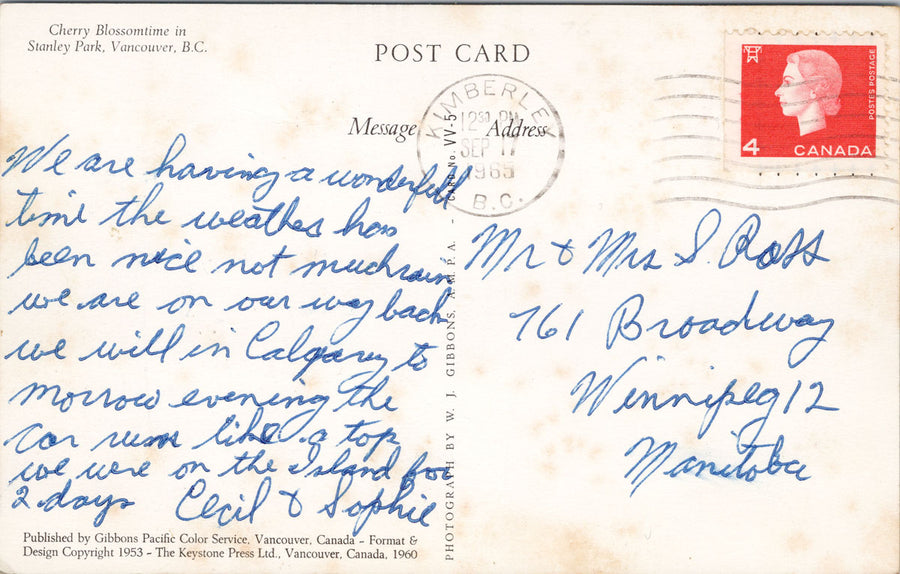 Cherry Blossomtime in
Stanley Park, Vancouver, B.C.
POST CARD
Message
Address
KIMBERLEY
12 30 PM
SEP 17
1965
B.C.
POSTES POSTAGE
4
CANADA
We are having a wonderfull
time the weather has
been nice not much rain
we are on our way back
we will in Calgary to
morrow evening the
car runs like a top
we were on the Island for
2 days Cecil & Sophie
Mr & Mrs S. Ross
761 Broadway
Winnipeg 12
Manitoba
PHOTOGRAPH BY W. J. GIBBONS, A.M.P.A. - CARD No. VV-5
Published by Gibbons Pacific Color Service, Vancouver, Canada - Format &
Design Copyright 1953 - The Keystone Press Ltd., Vancouver, Canada, 1960